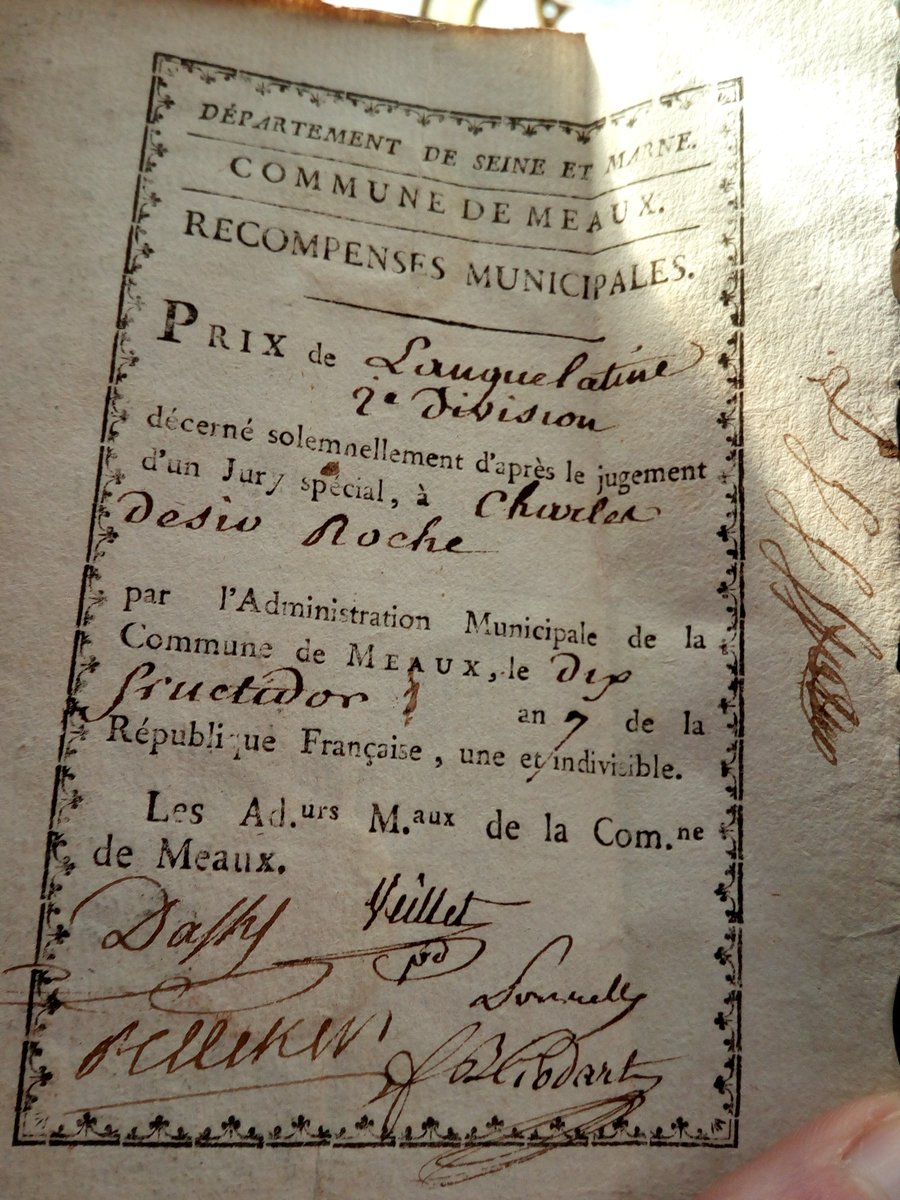 DÉPARTEMENT DE SEINE ET MARNE.
COMMUNE DE MEAUX.
RECOMPENSES MUNICIPALES.
PRIX de Langue latine
2e Division
décerné solemnellement d'après le jugement
d'un Jury spécial, à Charles
Desir Roche
par l'Administration Municipale de la
Commune de MEAUX, le dix
fructidor an 7 de la
République Française, une et indivisible.
Les Ad.urs M.aux de la Com.ne
de Meaux.
Dassy Veillet
pd